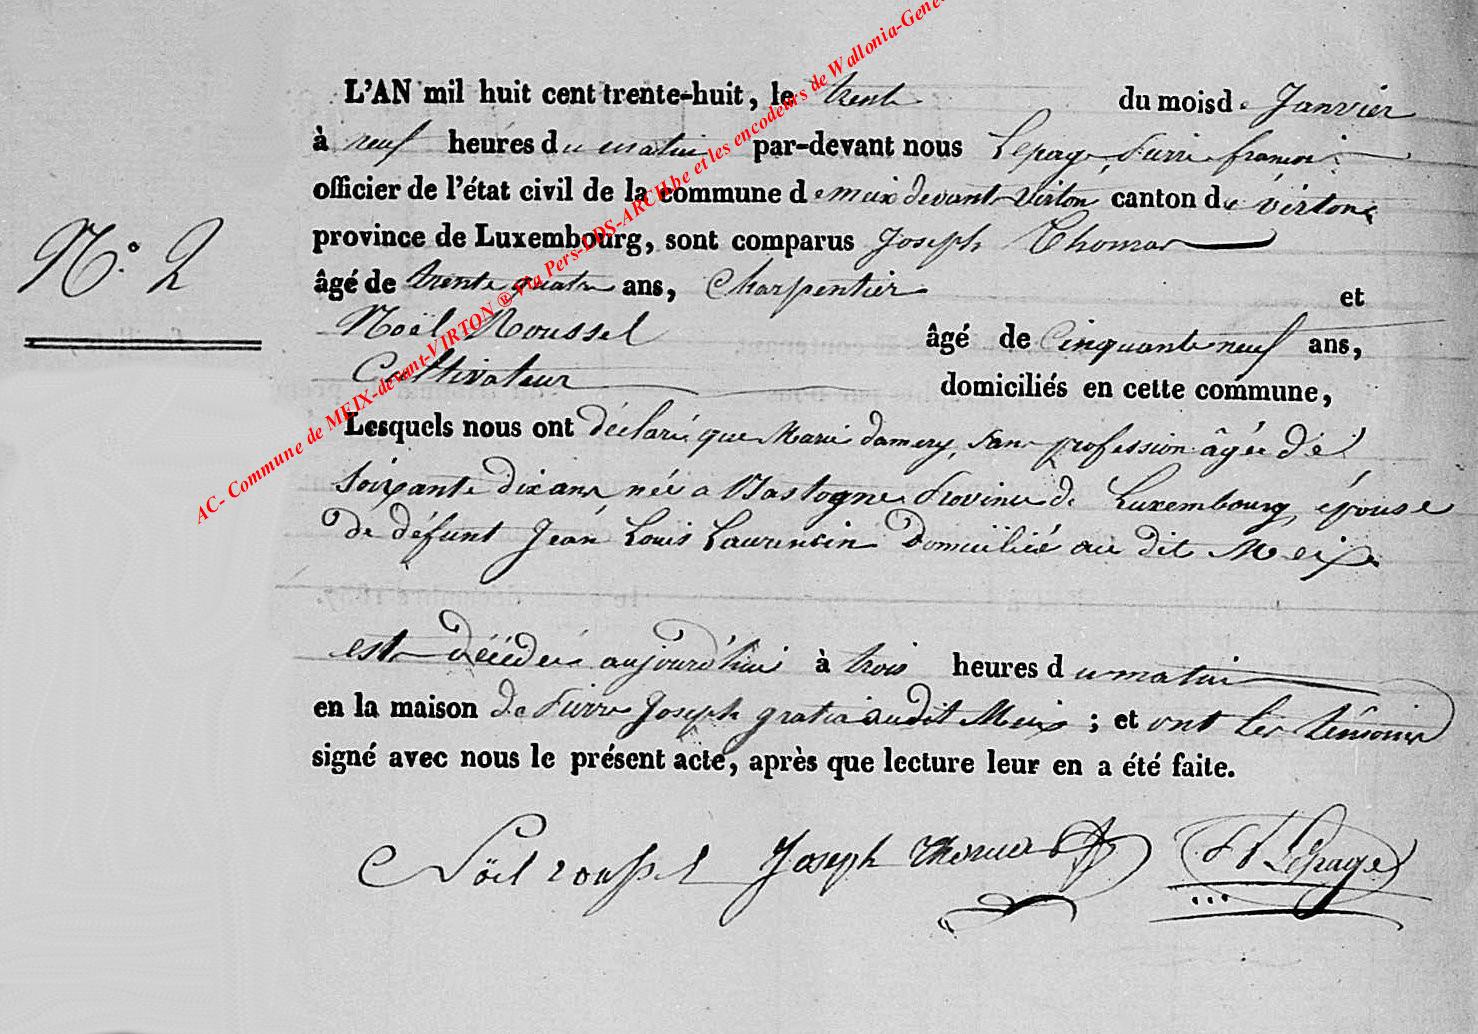 L'AN mil huit cent trente-huit, le trente du mois de Janvier
à neuf heures du matin par-devant nous Lepage Pierre françois
officier de l'état civil de la commune de meix devant Virton canton de virton
N.° 2
province de Luxembourg, sont comparus Joseph Thomas
âgé de trente quatre ans, Charpentier et
Noël Roussel âgé de Cinquante neuf ans,
Cultivateur domiciliés en cette commune,
Lesquels nous ont déclaré que Marie damery, sans profession âgée de
soixante dix ans née a Bastogne Province de Luxembourg, épouse
de défunt Jean Louis Laurencin Domicilié au dit Meix
est décédée aujourd'hui à trois heures du matin
en la maison de Pierre Joseph gratia audit Meix ; et ont les témoins
signé avec nous le présent acte, après que lecture leur en a été faite.
Noël roussel Joseph Thomas Lepage
AC- Commune de MEIX-devant-VIRTON ® via Pers-LDS-ARCH.be et les encodeurs de Wallonia-Gene